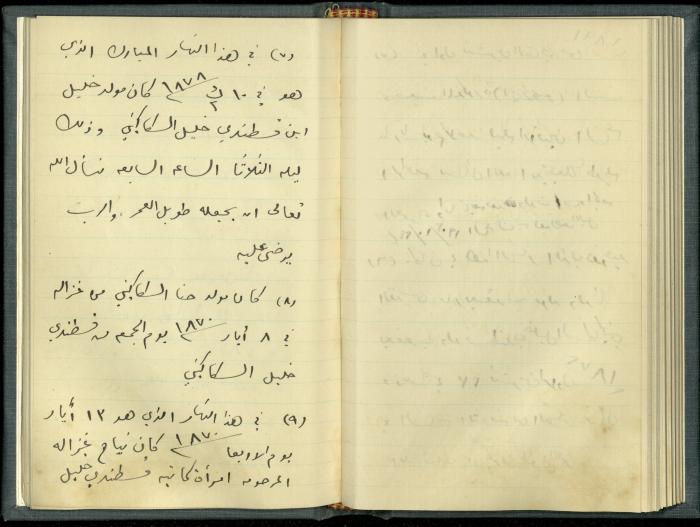 (٧) في هذا النهار المبارك الذي
هو في ١٠ ك ٢ ١٨٧٨ كان مولد خليل
ابن قسطندي خليل السكاكيني وذلك
ليلة الثلاثا الساعه السابعه نسأل الله
تعالى ان يجعله طويل العمر والرب
يرضى عليه
(٨) كان مولد حنا السكاكيني من غزاله
في ٨ أيار ١٨٧٠ يوم الجمعه من قسطندي
خليل السكاكيني
(٩) في هذا النهار الذي هو ١٣ أيار
يوم الاربعا ١٨٧٠ كان نياح غزاله
المرحومه امرأة كاتبه قسطندي خليل